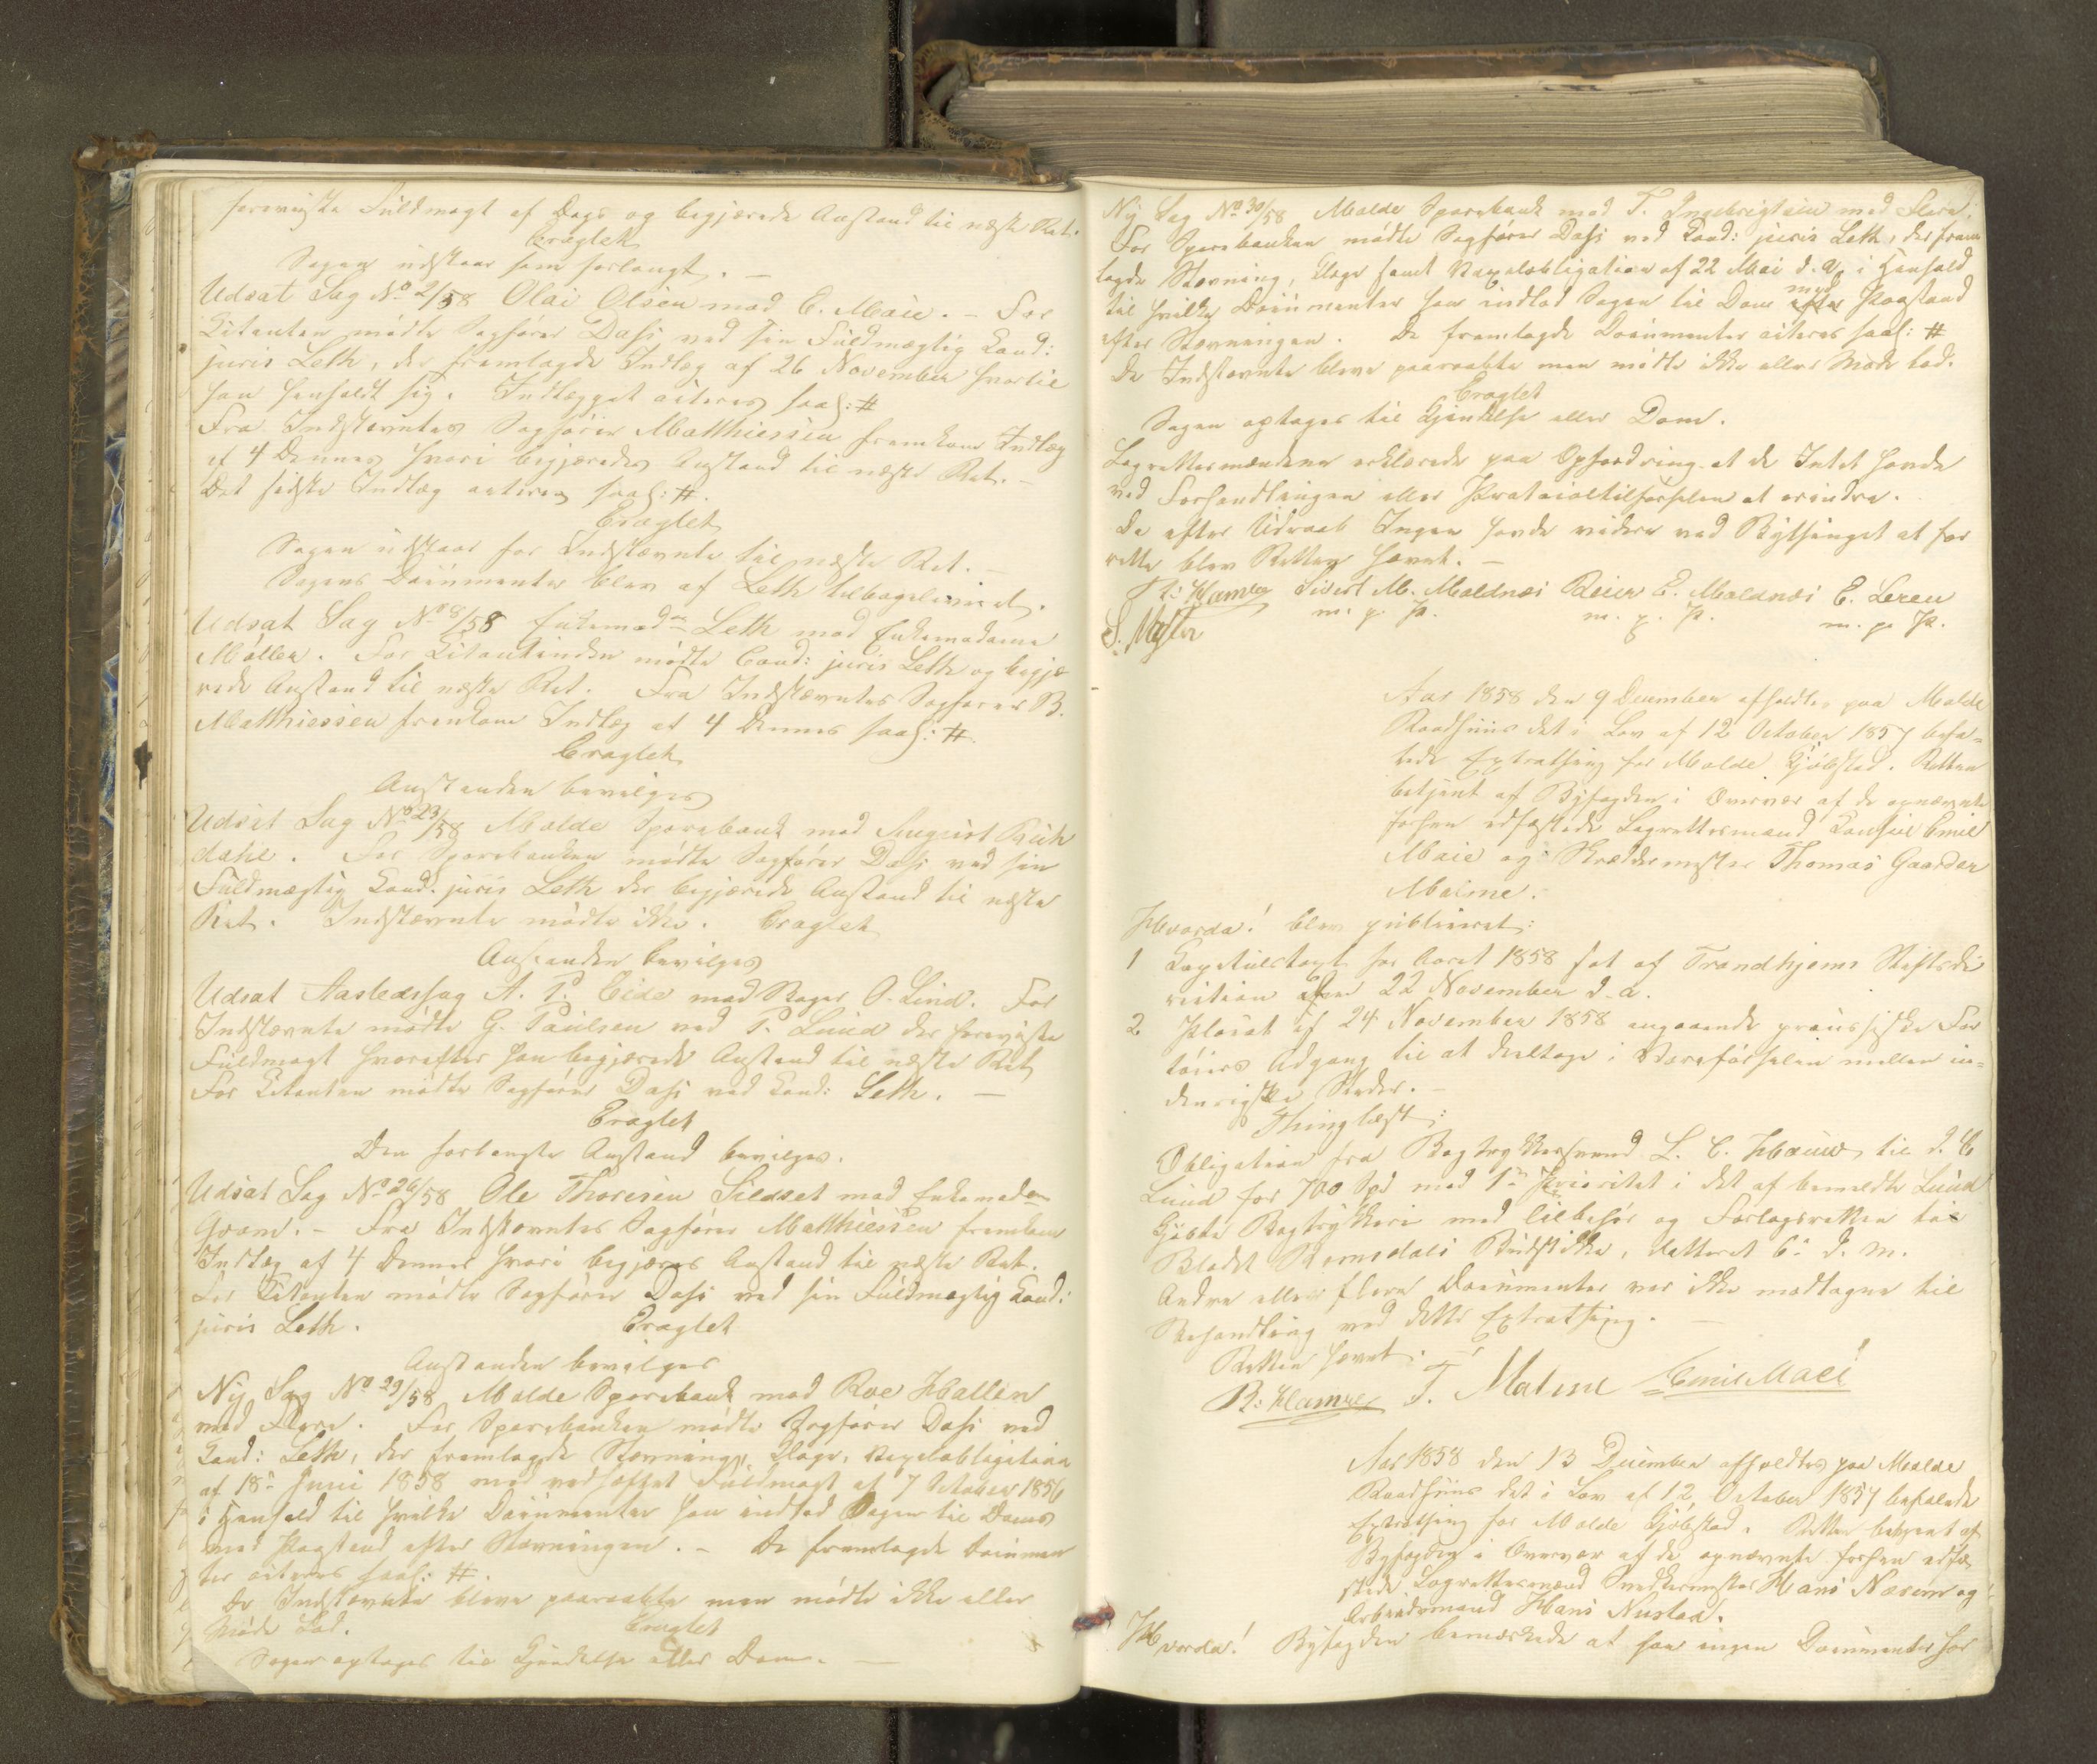 foreviste Fuldmagt af Dags og begjærede Anstand til næste Ret.
Eragtet
Sagen udstaar som forlangt. —
Udsat Sag No 2/58 Olai Olsen mod E. Maie. – For
Citanten mødte Sagfører Dahl ved sin Fuldmægtig Cand:
juris Leth, der fremlagde Indlæg af 26 November hvortil
han henholdt sig. Indlægget aiteres saal: #
Fra Indstævntes Sagfører Matthiessen fremkom Indlæg
af 4 Dennes hvori begjæredes Anstand til næste Ret. –
Det sidste Indlæg aiteres saal: #.
Eragtet
Sagen udstaar for Indstævnte til næste Ret. –
Sagens Documenter blev af Leth tilbageleveret.
Udsat Sag No 8/58 Enkemadm Leth mod Enkemadame
Møller. For Citantinden mødte Cand: juris Leth og begjæ
rede Anstand til næste Ret. Fra Indstævntes Sagfører B.
Matthiessen fremkom Indlæg af 4 Dennes saal: #.
Eragtet
Anstanden bevilges
Udsat Sag No 23/58 Molde Sparebank mod August
For Sparebanken mødte Sagfører Dahl ved sin
Fuldmægtig Cand. juris Leth der begjærede Anstand til næste
Ret. Indstævnte mødte ikke. Eragtet
Anstanden bevilges
Udsat Aastedssag A. P. Eide mod Bager O. Lind. For
Indstævnte mødte G. Paulsen ved P. Lund der foreviste
Fuldmagt hvorefter han begjærede Anstand til næste Ret
For Citanten mødte Sagfører Dahl ved Cand: Leth. —
Eragtet
Den forlangte Anstand bevilges.
Udsat Sag No 26/58 Ole Thoresen Sildset mod Enkemadm
Fra Indstævntes Sagfører Matthiessen fremkom
Indlæg af 4 Dennes hvori begjæres Anstand til næste Ret.
For Citanten mødte Sagfører Dahl ved sin Fuldmægtig Cand:
juris Leth. Eragtet
Anstanden bevilges
Ny Sag No 29/58 Molde Sparebank mod Roe Hallen
med Flere. For Sparebanken mødte Sagfører Dahl ved
Cand: Leth, der fremlagde Stævning, Klage, Vexelobligation
af 18de Juni 1858 med vedhæftet Fuldmagt af 7 October 1856
i Henhold til hvilke Documenter han indlod Sagen til Doms
med Paastand efter Stævningen. – De fremlagde Documen
ter aiteres saal: #.
De Indstævnte bleve paaraabte men mødte ikke eller
Møde lod. Eragtet
Sagen optages til Kjendelse eller Dom. —
Ny Sag No 30/58 Molde Sparebank mod T. Ingebrigtsen med Flere.
For Sparebanken mødte Sagfører Dahl ved Cand: juris Leth, der frem
lagde Stævning, Klage samt Vexelobligation af 22 Mai d. A. i Henhold
til hvilke Documenter han indlod Sagen til Dom med Paastand
efter Stævningen. De fremlagde Documenter aiteres saal: #
De Indstævnte bleve paaraabte men mødte ikke eller Møde lod.
Eragtet
Sagen optages til Kjendelse eller Dom.
Lagrettesmændene erklærede paa Opfordring at de Intet havde
ved Forhandlingen eller Protocoltilførselen at erindre.
Da efter Udraab Ingen havde videre ved Bythinget at for
rette blev Retten hævet. –
Sivert M. Moldnæs Reier E. Moldnæs E. Leren
m. p. P. m. p. P. m. p. P.
Aar 1858 den 9 December afholdtes paa Molde
Raadhuus det i Lov af 12 October 1857 befa-
lede Extrathing for Molde Kjøbstad. Retten
betjent af Byfogden i Overvær af de opnævnte
forhen edfæstede Lagrettesmænd Consul Emil
Maie og Skræddermester Thomas Gaarder
Malme.
Hvorda! blev publiceret:
1 Capitelstaxt for Aaret 1858 sat af Trondhjems Stiftsdi
rection den 22 November d. a.
2 Placat af 24 November 1858 angaaende preussiske Far
tøiers Adgang til at deeltage i Vareførselen mellem in-
denrigske Steder. –
Thinglæst:
Obligation fra Bogtrykkersvend L. C. til d. C
Lund for 700 Spd med 1ste Prioritet i det af bemeldte Lund
kjøbte Bogtrykkeri med Tilbehør og Forlagsretten til
Bladet Romsdals Budstikke, datteret 6te d. M.
Andre eller flere Documenter var ikke modtagne til
Behandling ved dette Extrathing. —
Retten hævet.
T. Malme Emil Maie
Aar 1858 den 13 December afholdtes paa Molde
Raadhuus det i Lov af 12 October 1857 befalede
Extrathing for Molde Kjøbstad. Retten betjent af
Byfogden i Overvær af de opnævnte forhen edfæ
stede Lagrettesmænd Snedkermester Hans Næsene og
Arbeidsmand Hans Nustad.
Hvorda! Byfogden bemærkede at han ingen Documenter for